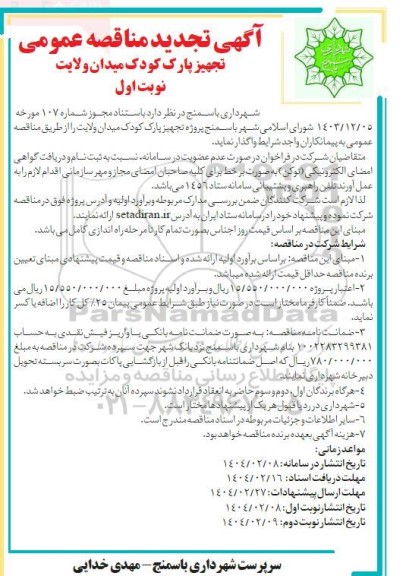 آگهی تجدید مناقصه عمومی
تجهیز پارک کودک میدان ولایت
نوبت اول
شهرداری باسمنج در نظر دارد باستناد مجوز شماره ۱۰۷ مورخه
۱۴۰۳/۱۲/۰۵ شورای اسلامی شهر باسمنج پروژه تجهیز پارک کودک میدان ولایت را از طریق مناقصه
عمومی به پیمانکاران واجد شرایط واگذار نماید.
متقاضیان شرکت در فراخوان در صورت عدم عضویت در سامانه، نسبت به ثبت نام و دریافت گواهی
امضای الکترونیکی (توکن) که به صورت بر خط برای کلیه صاحبان امضای مجاز و مهر سازمانی اقدام لازم را به
عمل آورند تلفن راهبری و پشتیبانی سامانه ستاد ۱۴۵۶ می باشد.
لذا لازم است شرکت کنندگان ضمن بررسی مدارک مربوطه و برآورد اولیه و آدرس پروژه فوق در مناقصه
شرکت نموده و پیشنهاد خود را در سامانه ستاد ایران به آدرس setadiran.ir ارائه نمایند.
مبنای این مناقصه بر اساس قیمت روز اجناس بصورت تمام کار تا مرحله راه اندازی کامل می باشد.
شرایط شرکت در مناقصه:
۱-مبنای این مناقصه: بر اساس برآورد اولیه ارائه شده و اسناد مناقصه و قیمت پیشنهادی مبنای تعیین
برنده مناقصه حداقل قیمت ارائه شده میباشد.
۲-اعتبار پروژه ۱۵/۵۵۰/۰۰۰/۰۰۰ ریال و برآورد اولیه پروژه مبلغ ۱۵/۵۵۰/۰۰۰/۰۰۰ ریال می
باشد. ضمناً کارفرما مختار است در صورت نیاز طبق شرایط عمومی پیمان ۲۵٪ کل کار را اضافه یا کسر
نماید.
۳-ضمانت نامه مناقصه: به صورت ضمانت نامه بانکی یا واریز فیش نقدی به حساب
۱۰۰۲۲۸۳۲۹۹۳۸۱ بنام شهرداری باسمنج نزد بانک شهر جهت سپرده شرکت در مناقصه به مبلغ
۷۸۰/۰۰۰/۰۰۰ ریال که اصل ضمانتنامه بانکی را قبل از بازگشایی پاکات بصورت سربسته تحویل
دبیرخانه شهرداری نمایند.
۴-هرگاه برندگان اول، دوم و سوم حاضر به انعقاد قرارداد نشوند سپرده آنان به ترتیب ضبط خواهد شد.
۵-شهرداری در رد یا قبول هر یک از پیشنهادها مختار است.
۶-سایر اطلاعات و جزئیات مربوطه در اسناد مناقصه مندرج است.
۷-هزینه آگهی بعهده برنده مناقصه خواهد بود.
مواعد زمانی:
تاریخ انتشار در سامانه: ۱۴۰۴/۰۲/۰۸
مهلت دریافت اسناد: ۱۴۰۴/۰۲/۱۶
مهلت ارسال پیشنهادات: ۱۴۰۴/۰۲/۲۷
تاریخ انتشار نوبت اول: ۱۴۰۴/۰۲/۰۸
تاریخ انتشار نوبت دوم: ۱۴۰۴/۰۲/۰۹
سرپرست شهرداری باسمنج - مهدی خدایی